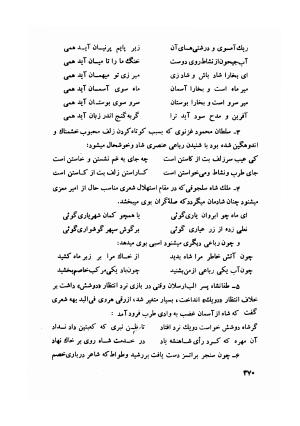 ریگ آموی و درشتی‌های آن زیر پایم پرنیان آید همی
آب جیحون از نشاط روی دوست خنگ ما را تا میان آید همی
ای بخارا شاد باش و شاد زی میر زی تو میهمان آید همی
میر ماه است و بخارا آسمان ماه سوی آسمان آید همی
میر سرو است و بخارا بوستان سرو سوی بوستان آید همی
آفرین و مدح سود آید ترا گر به گنج اندر زیان آید همی
۳ـ سلطان محمود غزنوی که بسبب کوتاه کردن زلف محبوب خشمناک و
اندوهگین شده بود با شنیدن رباعی عنصری شاد و خوشحال میشود:
کی عیب سر زلف بت از کاستن است چه جای به غم نشستن و خاستن است
جای طرب و نشاط و می‌خواستن است کاراستن زلف بت از کاستن است
۴ـ ملك شاه سلجوقی که در مقام استهلال شعری مناسب حال از امیر معزی
میشنود چنان شادمان میگردد که صلهٔ گران بوی میبخشد.
ای ماه چو ابروان یاری گوئی یا همچو کمان شهریاری گوئی
نعلی زده از زر عیاری گوئی بر گوش سپهر گوشواری گوئی
و چون رباعی دیگری میشنود اسبی بوی میدهد:
چون آتش خاطر مرا شاه بدید از خاك مرا بر زبر ماه کشید
چون آب یکی رباعی از من بشنید چون باد یکی مرکب خاصم بخشید
۵ـ طغانشاه پسر الب ارسلان وقتی در بازی نرد انتظار «دوشش» داشت بر
خلاف انتظار «دویك» انداخت، بسیار متغیر شد، ازرقی هروی فی‌البدیهه شعری
گفت که شاه از آسمان غضب به وادی طرب فرود آمد:
گر شاه دوشش خواست دویك نرد افتاد تا، ظن نبری که کعبتین داد نداد
آن مهره که کرد رأی شاهنشه یاد در خدمت شاه روی بر خاك نهاد
۶ـ چون سنجر بر اتسز دست یافت و بررشید وطواط که شاعر دربار خصم
۳۷۰